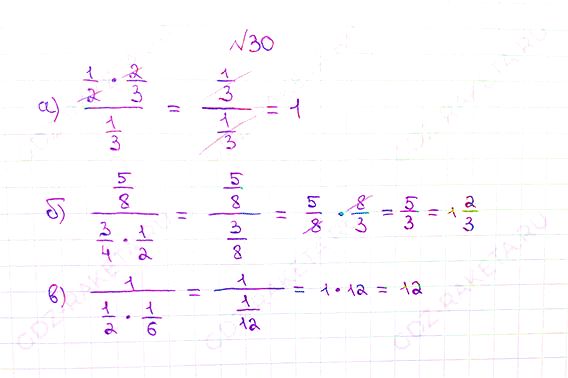 √30
а) (1/2 · 2/3)/(1/3) = (1/3)/(1/3) = 1
б) (5/8)/(3/4 · 1/2) = (5/8)/(3/8) = 5/8 · 8/3 = 5/3 = 1 2/3
в) 1/(1/2 · 1/6) = 1/(1/12) = 1 · 12 = 12
GDZ-RAKETA.RU